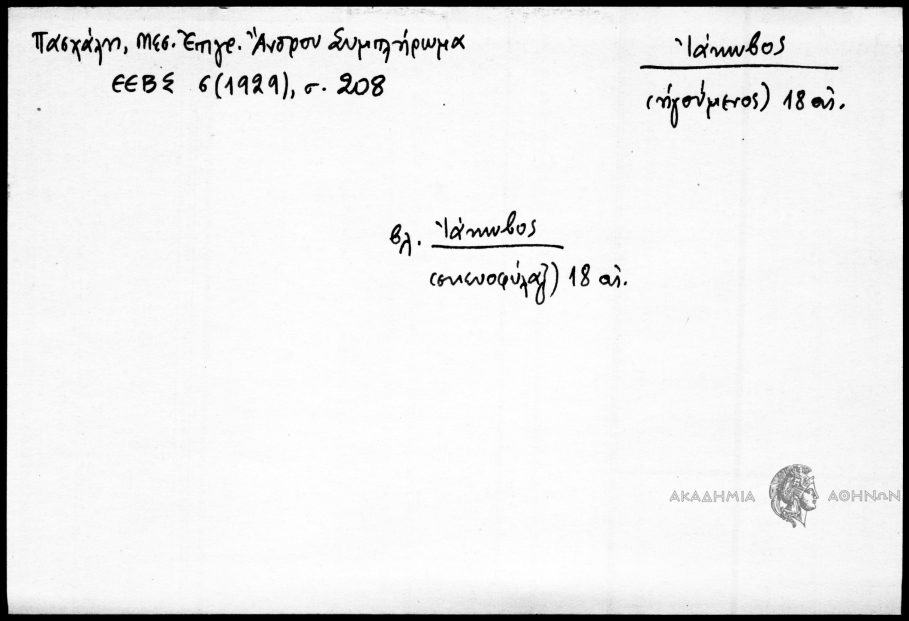 Πασχάλη, Μεσ. Ἐπιγρ. Ἄνδρου Συμπλήρωμα
ΕΕΒΣ 6 (1929), σ. 208
Ἰάκωβος
(ἡγούμενος) 18 αἰ.
βλ. Ἰάκωβος
(σκευοφύλαξ) 18 αἰ.
ΑΚΑΔΗΜΙΑ ΑΘΗΝΩΝ